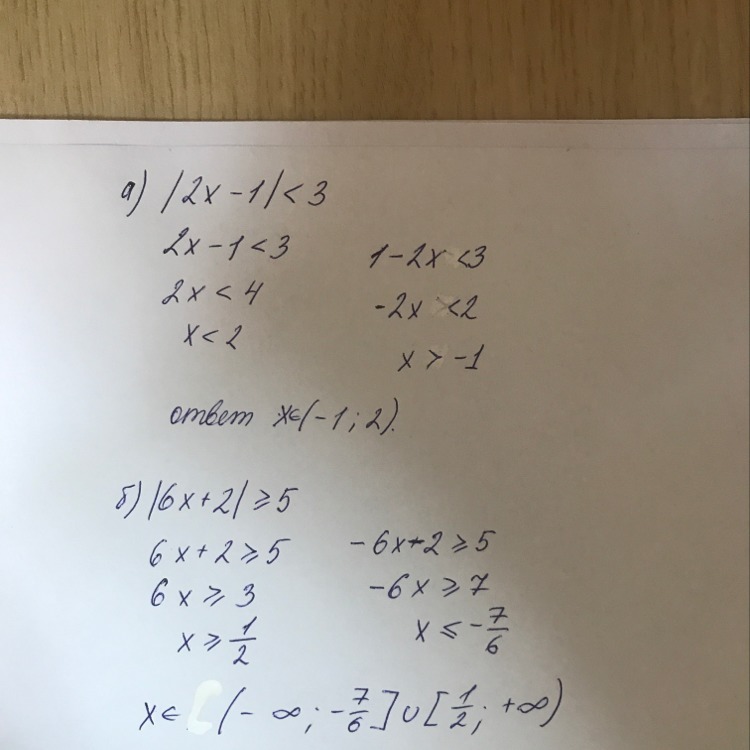 а) |2x-1|<3
2x-1<3 1-2x<3
2x<4 -2x<2
x<2 x>-1
ответ x∈(-1;2).
б) |6x+2|≥5
6x+2≥5 -6x-2≥5
6x≥3 -6x≥7
x≥1/2 x≤-7/6
x∈(-∞;-7/6]∪[1/2;+∞)